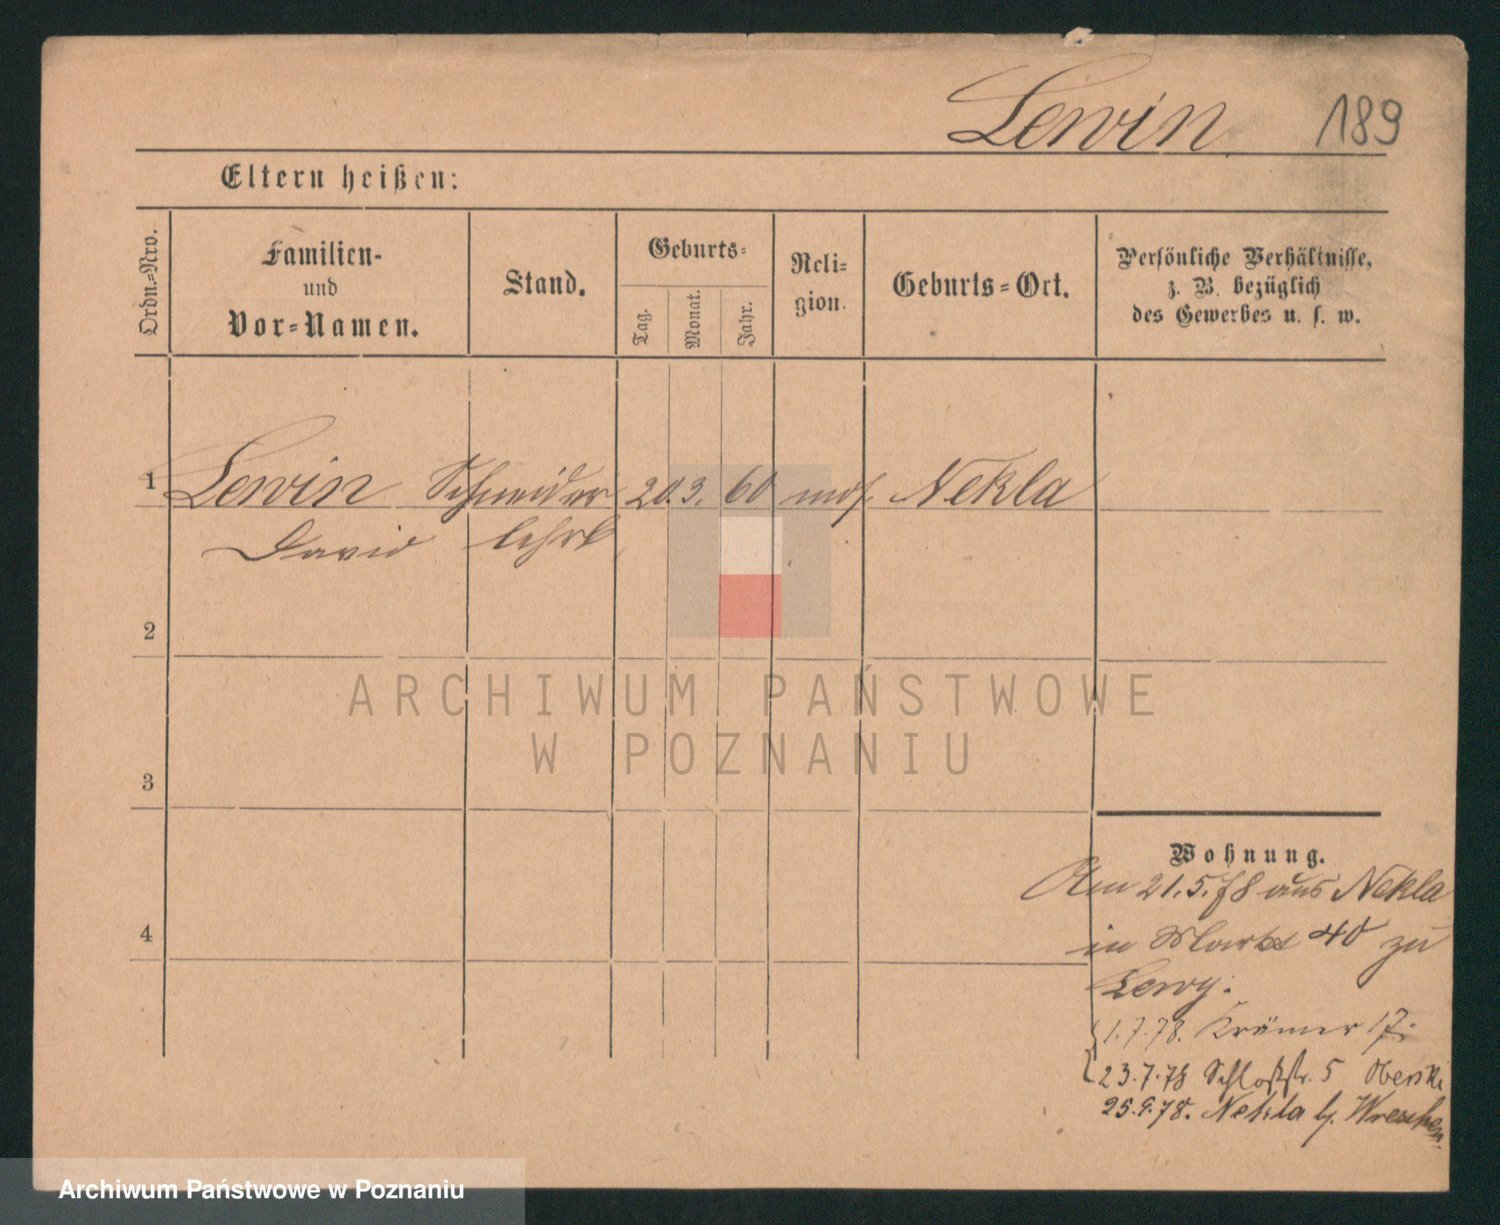 Lewin 189
Eltern heißen:
Ordn.=Nro.
Familien-
und
Vor=Namen.
Stand.
Geburts=
Tag.
Monat.
Jahr.
Reli=
gion.
Geburts=Ort.
Persönliche Verhältnisse,
z. B. bezüglich
des Gewerbes u. s. w.
1 Lewin Schneider 20. 3. 60 mos. Nekla
David lehrl
2
3
4
Wohnung.
Am 21.5.78 aus Nekla
in Markt 40 zu
Lewy.
1.7.78. Krämer 17.
23.7.78 Schloßstr. 5 Oberski
25.9.78. Nekla b. Wreschen
ARCHIWUM PAŃSTWOWE
W POZNANIU
Archiwum Państwowe w Poznaniu